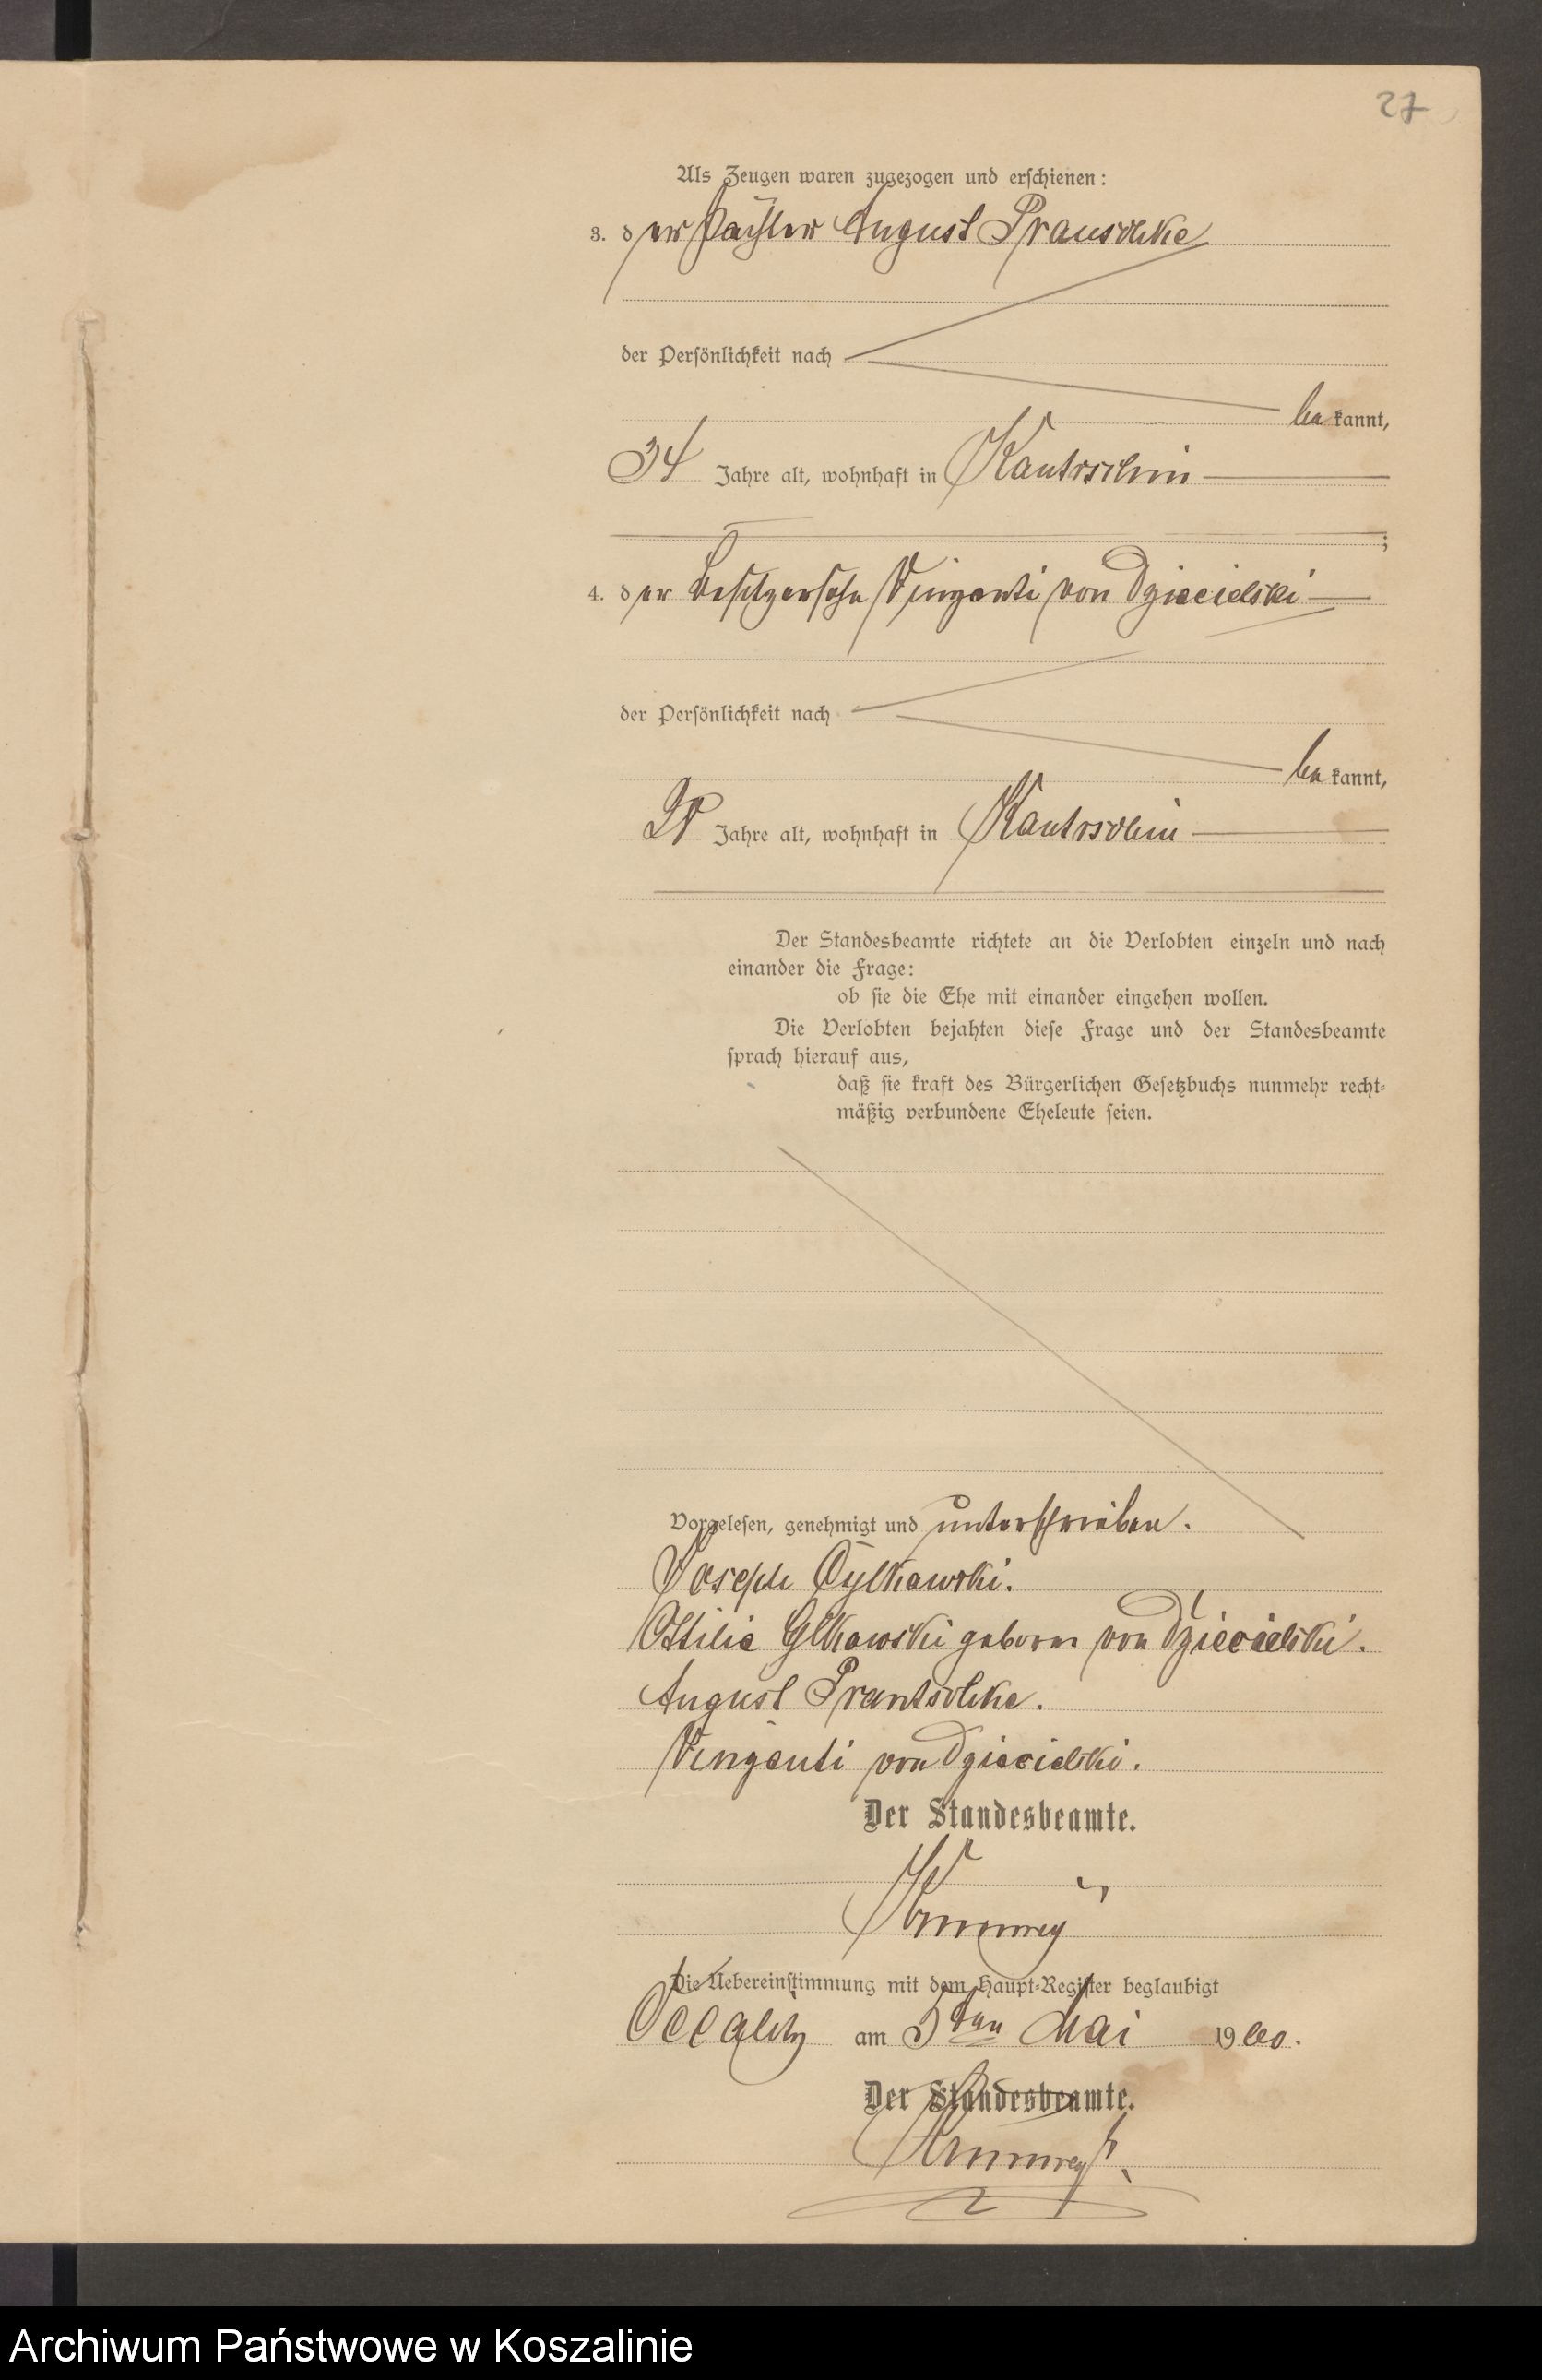 27
Als Zeugen waren zugezogen und erschienen:
3. der Pächter August Prauschke
der Persönlichkeit nach
bekannt,
34 Jahre alt, wohnhaft in Kantrschin
;
4. der Besitzersohn Vinzenti von Dziecielski
der Persönlichkeit nach
bekannt,
Jahre alt, wohnhaft in Kantrschin
Der Standesbeamte richtete an die Verlobten einzeln und nach
einander die Frage:
ob sie die Ehe mit einander eingehen wollen.
Die Verlobten bejahten diese Frage und der Standesbeamte
sprach hierauf aus,
daß sie kraft des Bürgerlichen Gesetzbuchs nunmehr recht-
mäßig verbundene Eheleute seien.
Vorgelesen, genehmigt und unterschrieben.
Joseph
Ottilie geborene von Dziecielski.
August Prantschke.
Vinzenti von Dziecielski.
Der Standesbeamte.
Die Uebereinstimmung mit dem Haupt-Register beglaubigt
am 5ten Mai 1900.
Der Standesbeamte.
Archiwum Państwowe w Koszalinie